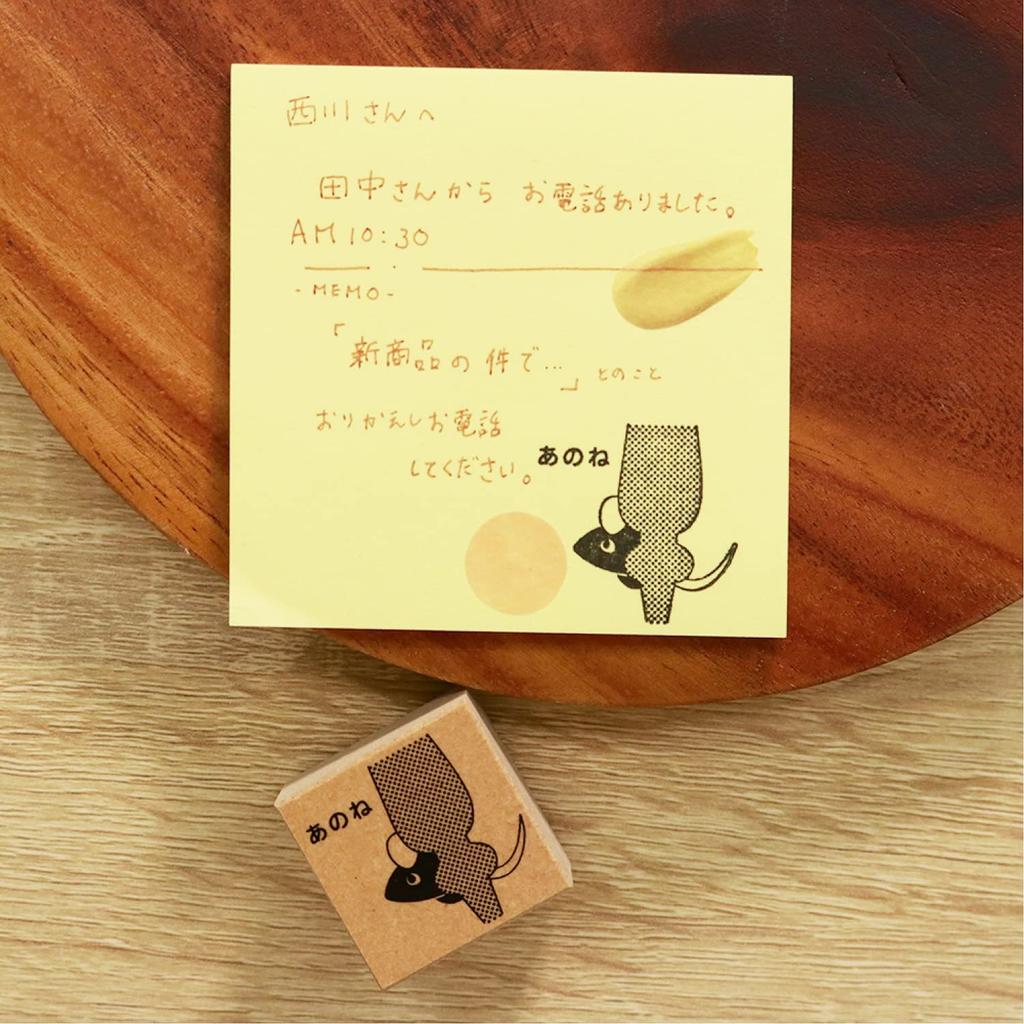 西川さんへ
田中さんから お電話ありました。
AM 10:30
-MEMO-
「新商品の件で…」とのこと
おりかえしお電話
してください。
あのね
あのね